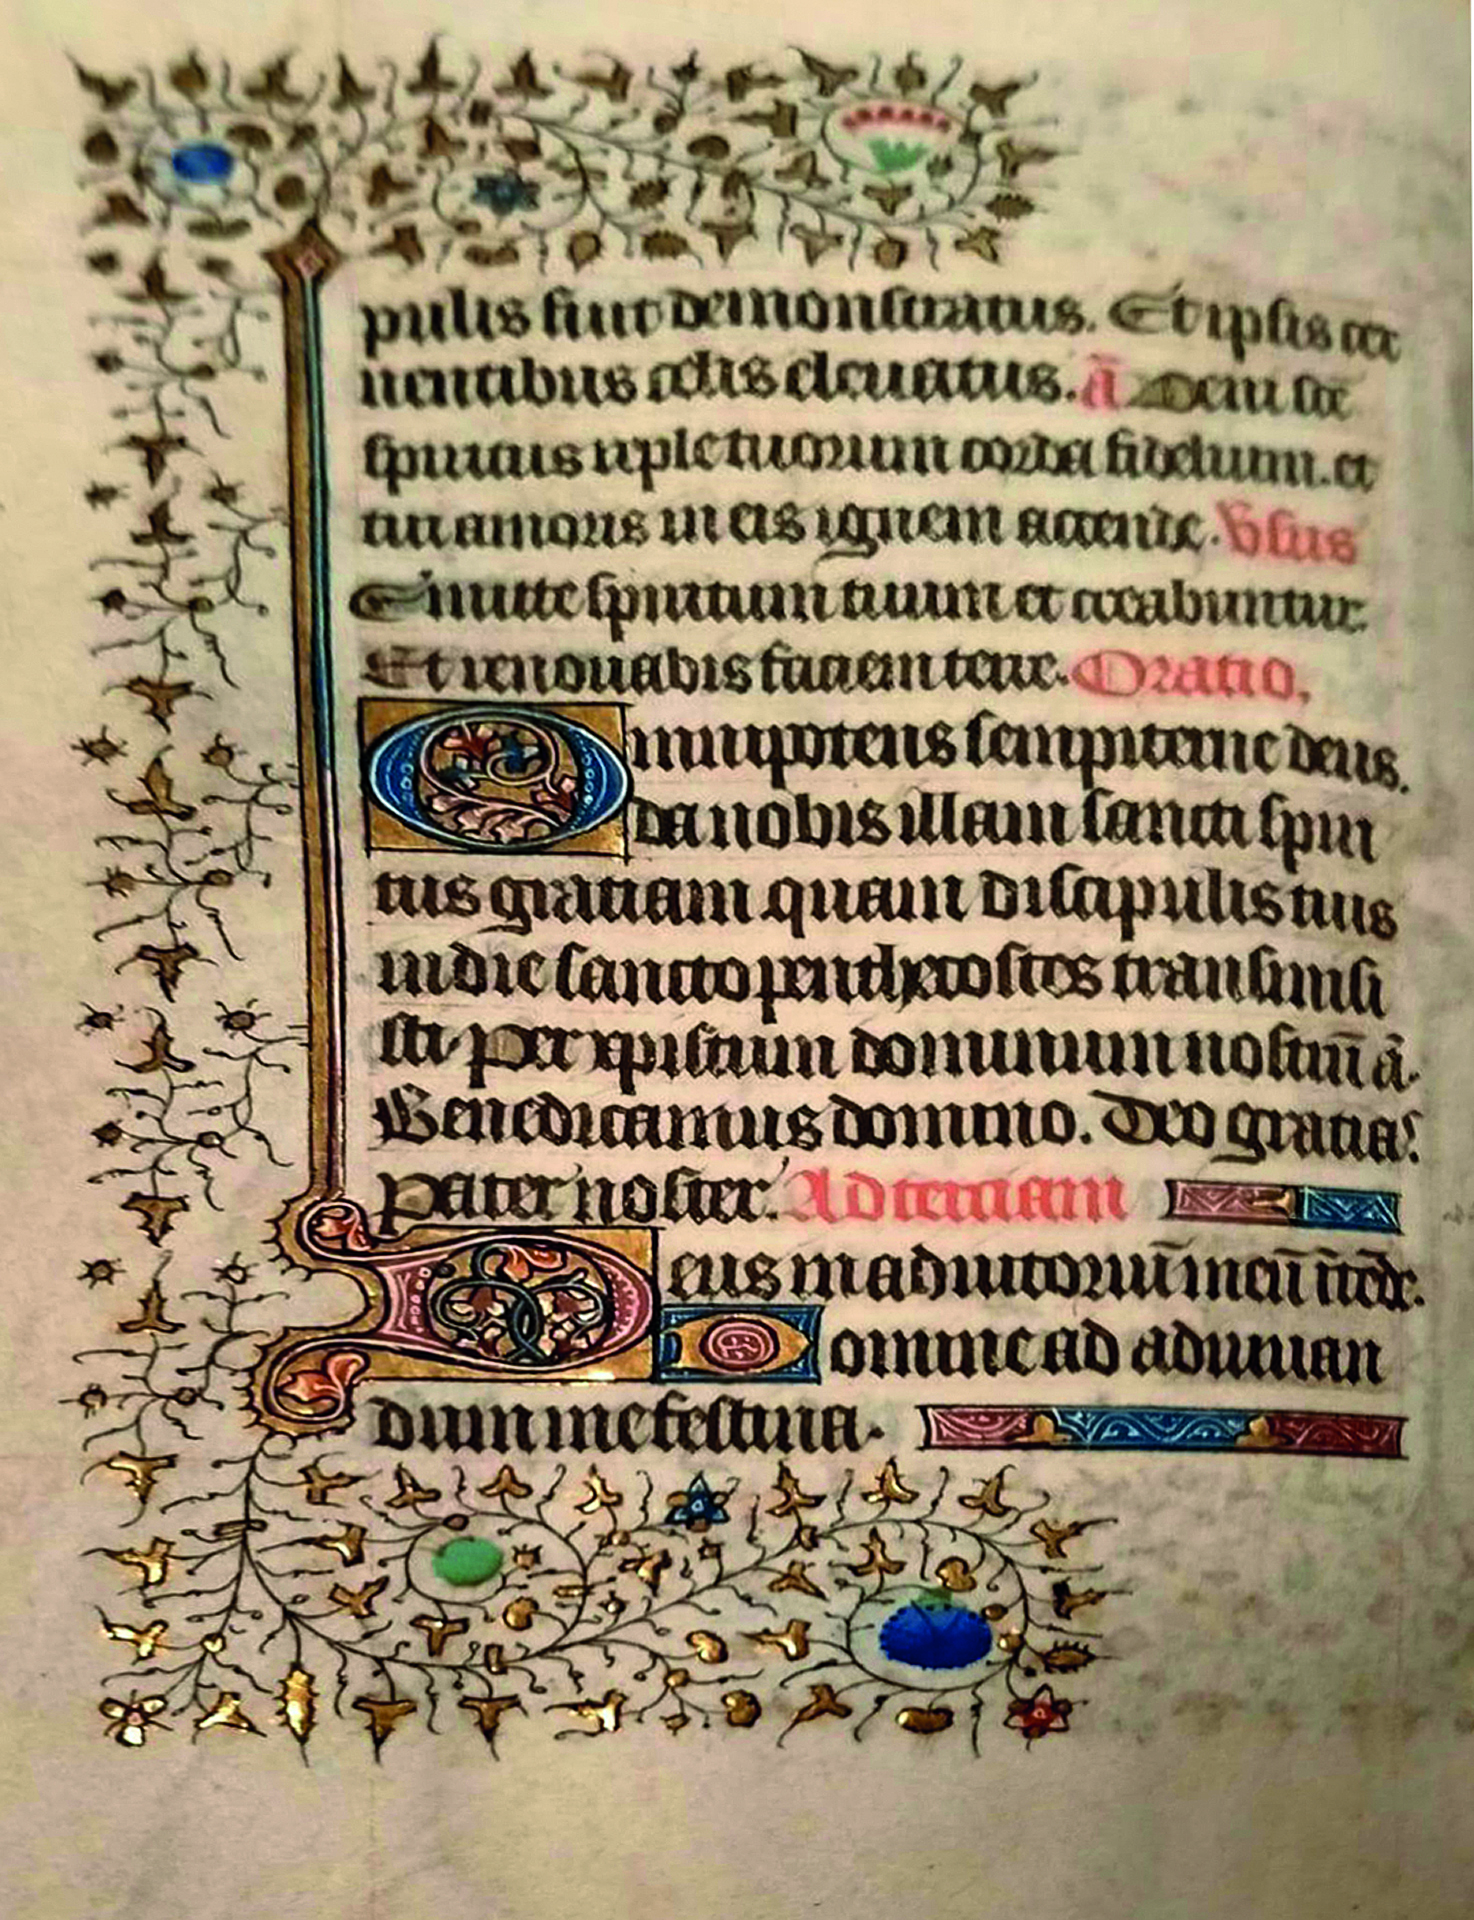 pulis fiut demonstratus. Et ipsis cer
nentibus celis eleuatus. ā Veni sce
spiritus reple tuorum corda fidelium. et
tui amoris in eis ignem accende. Vsus
Emitte spiritum tuum et creabuntur
Et renouabis faciem terre. Oratio,
Omnipotens sempiterne deus.
da nobis illam sancti spiri
tus gratiam quam discipulis tuis
in die sancto penthecostes transmisi
sti. Per xpistum dominum nostrū ā.
Benedicamus domino. Deo gratias.
Pater noster. Ad terciam
Deus in adiutoriū meū ītēde.
Domine ad adiuuan
dum me festina.